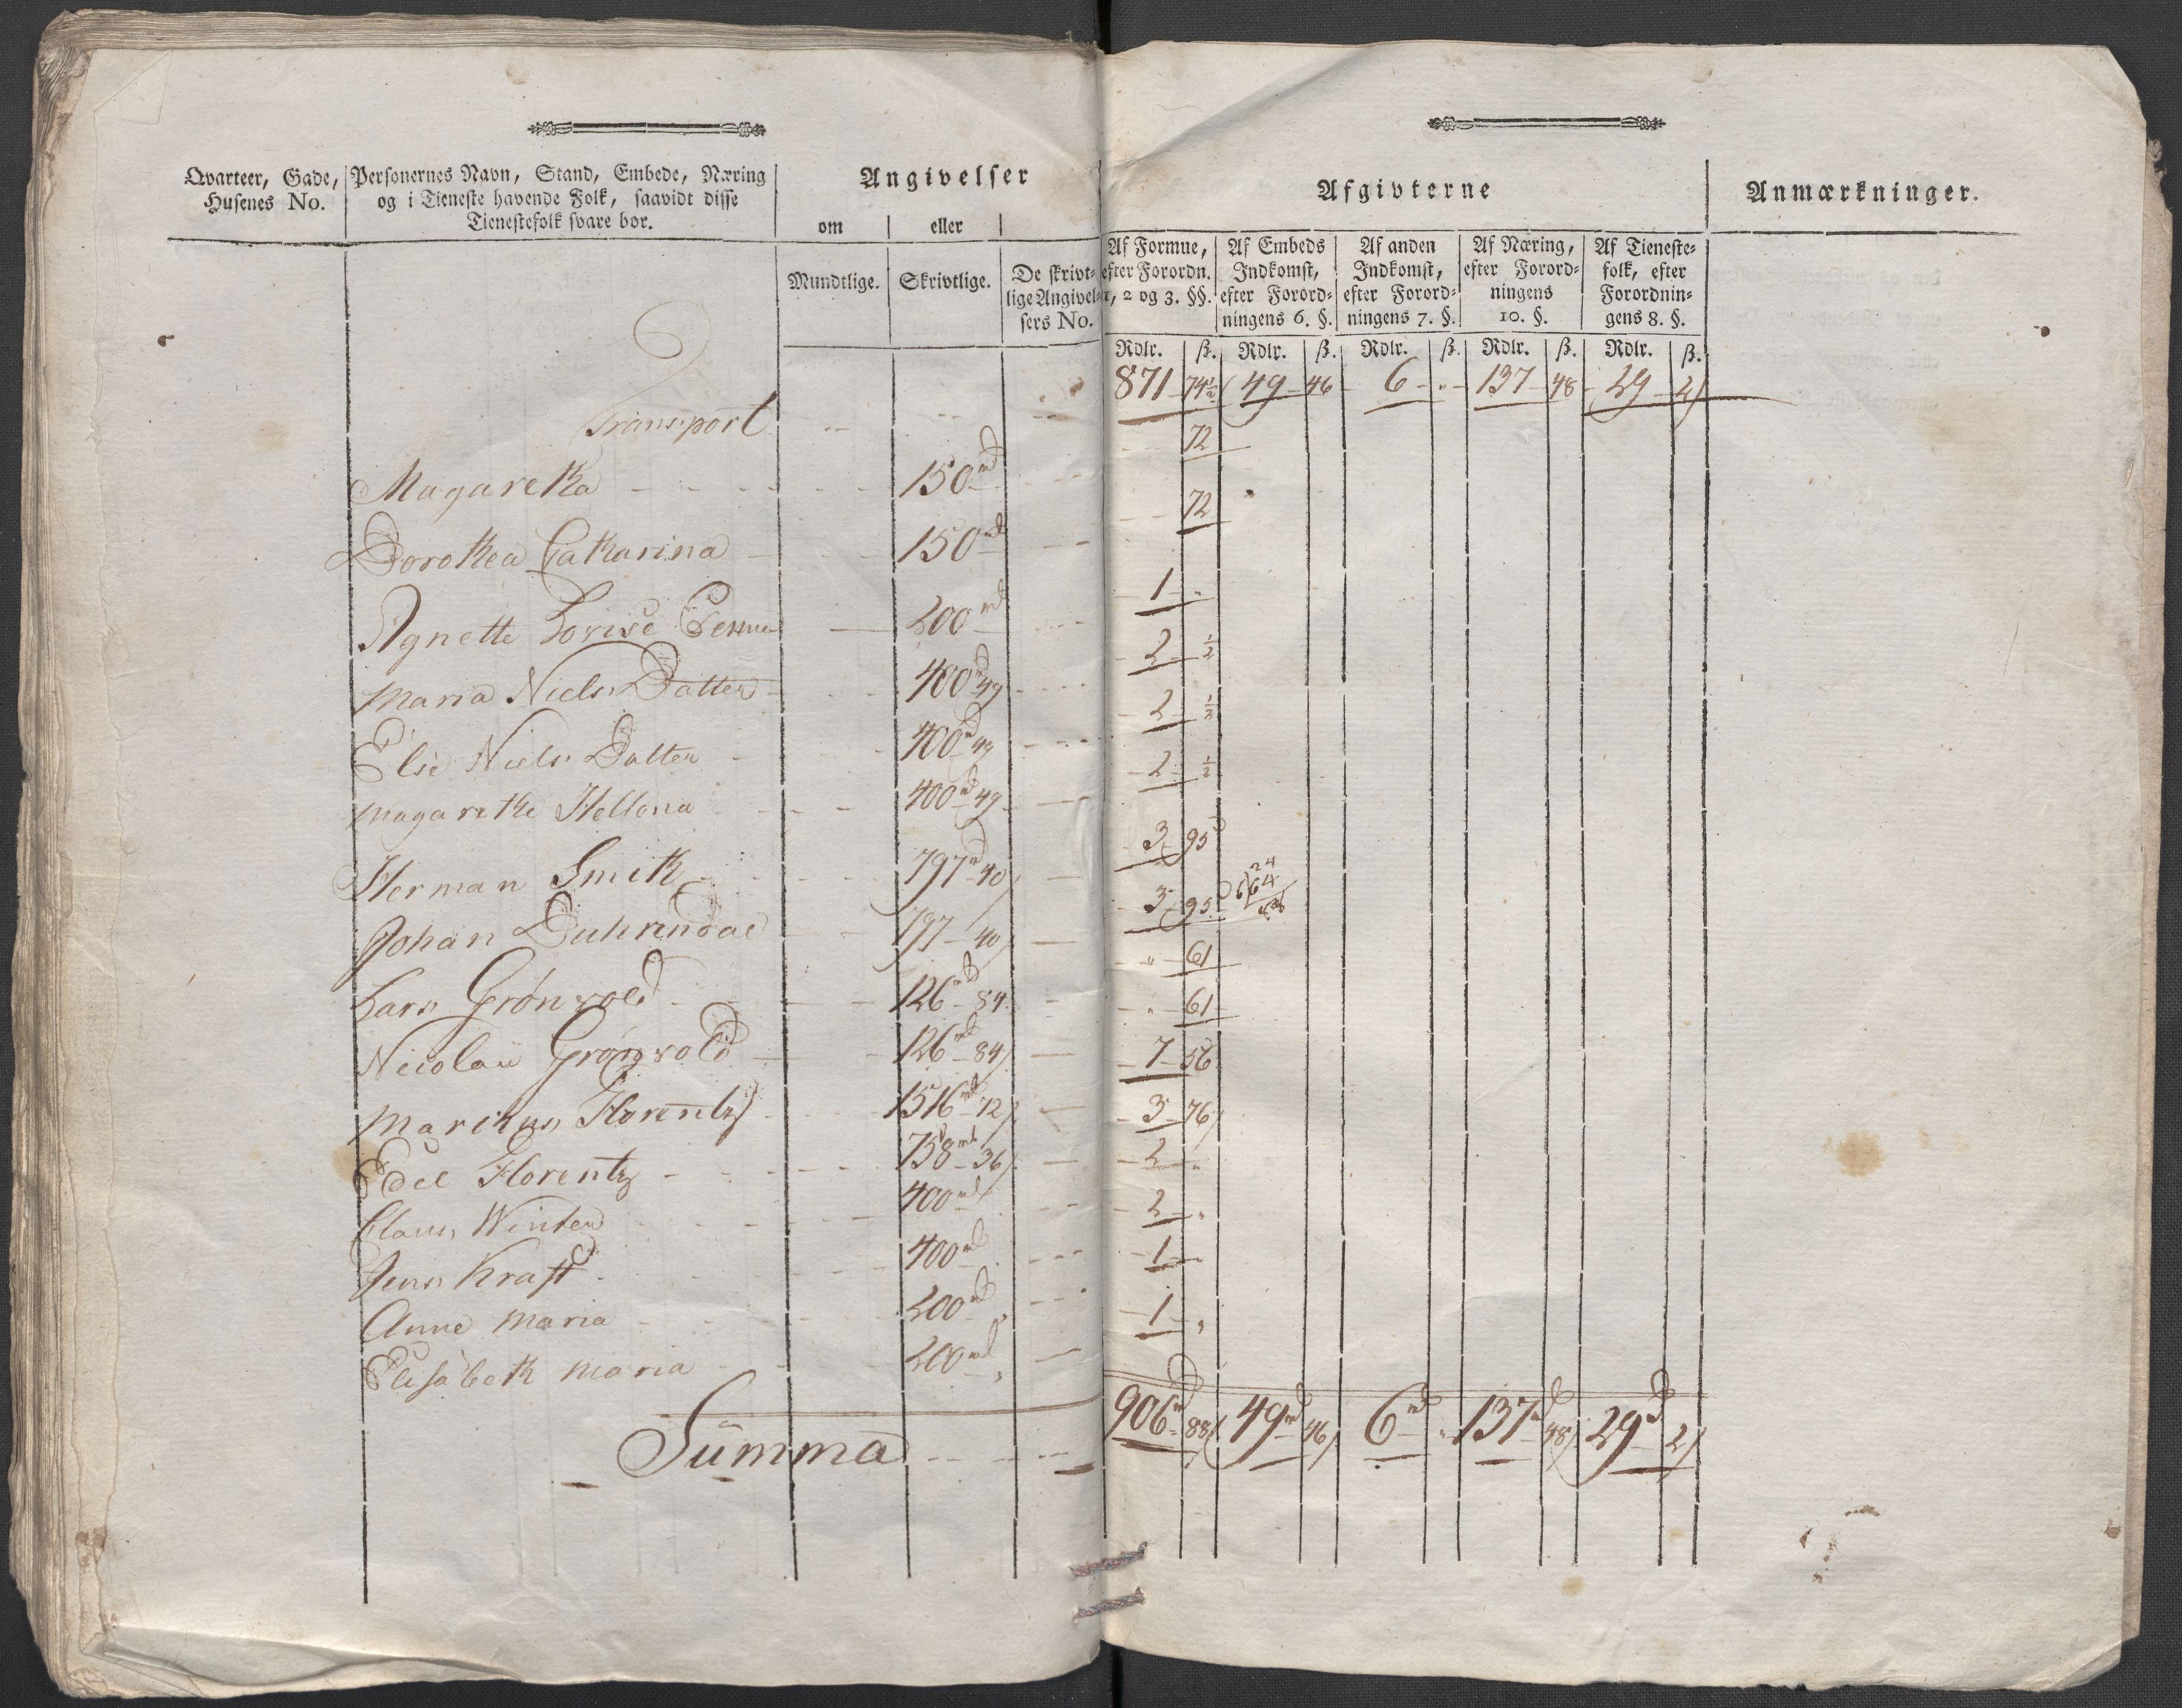 Qvarteer, Gade, Husenes No. | Personernes Navn, Stand, Embede, Næring og i Tieneste havende Folk, saavidt disse Tienestefolk svare bør. | Angivelser om | eller | Afgivterne | Anmærkninger.
Mundtlige. | Skrivtlige. | De skrivtlige Angivelsers No. | Af Formue, efter Forordn. 1, 2 og 3. §§. | Af Embeds Indkomst, efter Forordningens 6. §. | Af anden Indkomst, efter Forordningens 7. §. | Af Næring, efter Forordningens 10. §. | Af Tienestefolk, efter Forordningens 8. §.
Rdlr. | ß. | Rdlr. | ß. | Rdlr. | ß. | Rdlr. | ß. | Rdlr. | ß.
Transport 871 74½ 49 46 6 " 137 48 29 2
Magaretha 150 rd 72
Dorothea Catharina 150 rd 72
Agnette Lovise 200 rd 1 "
Maria Niels Datter 400 rd 49 2 ½
Else Niels Datter 400 rd 49 2 ½
Magarethe Hellona 400 rd 49 2 ½
Herman Smith 797 rd 40 3 95
Johan 797 40 3 95
Lars Grönvold 126 rd 84 " 61
Nicolai Grönvold 126 rd 84 " 61
Marthus Florentz 1516 rd 72 7 56
Edel Florentz 758 rd 36 3 76
Claus Winter 400 rd 2 "
Jens Kraft 400 rd 2 "
Anne Maria 200 rd 1 "
Elisabeth Maria 200 rd 1 "
Summa 906 rd 88 49 rd 46 6 rd " 137 rd 48 29 rd 2